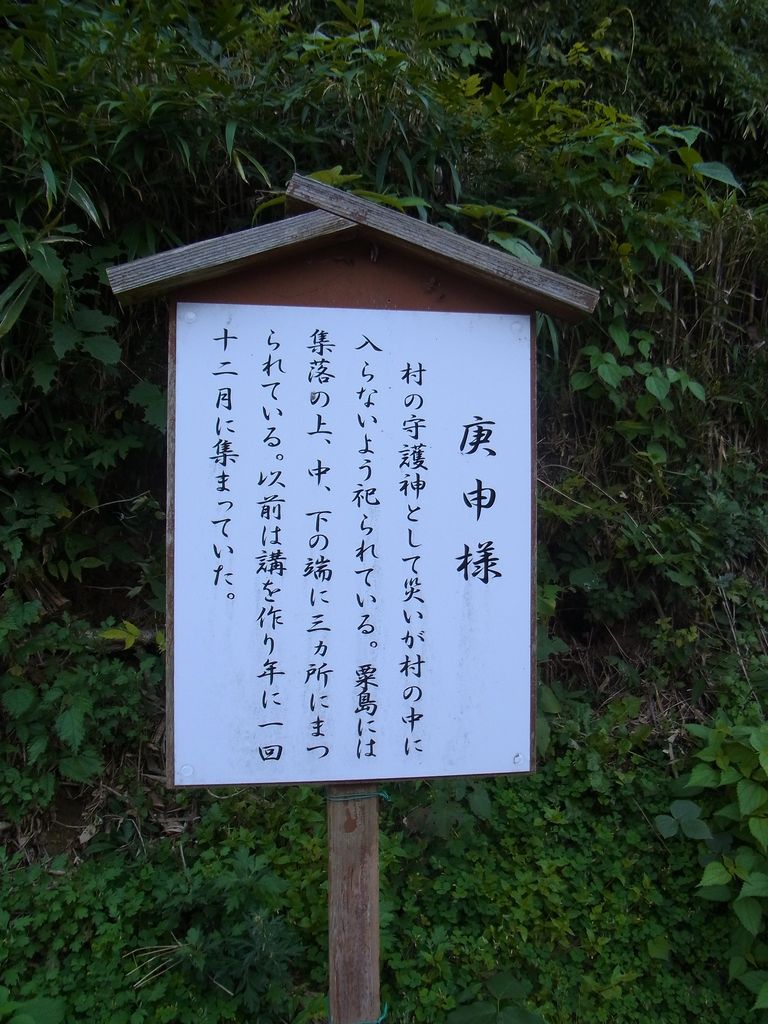 庚申様
村の守護神として災いが村の中に
入らないよう祀られている。粟島には
集落の上、中、下の端に三ヵ所にまつ
られている。以前は講を作り年に一回
十二月に集まっていた。